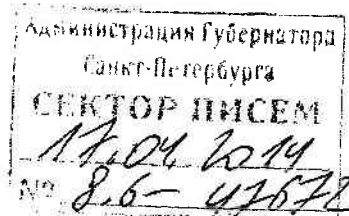 Администрация Губернатора
Санкт-Петербурга
СЕКТОР ПИСЕМ
17.04 2014
№ 8.6- 47672